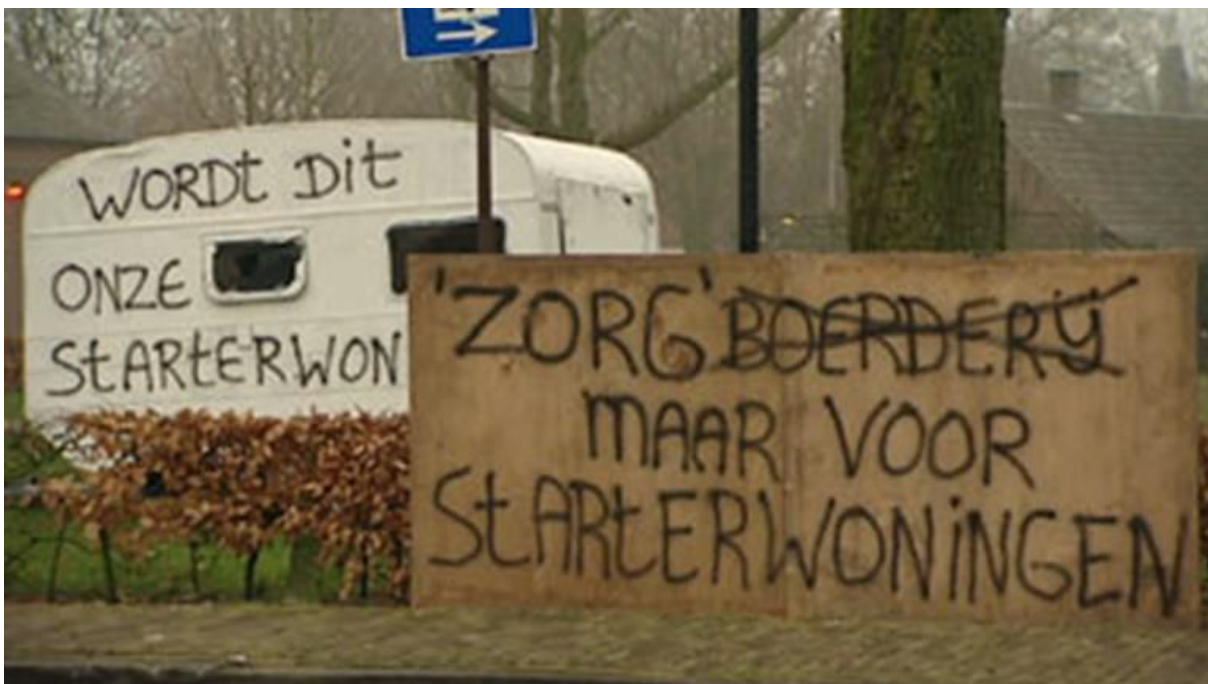 WORDT DIT
ONZE
STARTERWON
'ZORG' BOERDERIJ
MAAR VOOR
STARTERWONINGEN